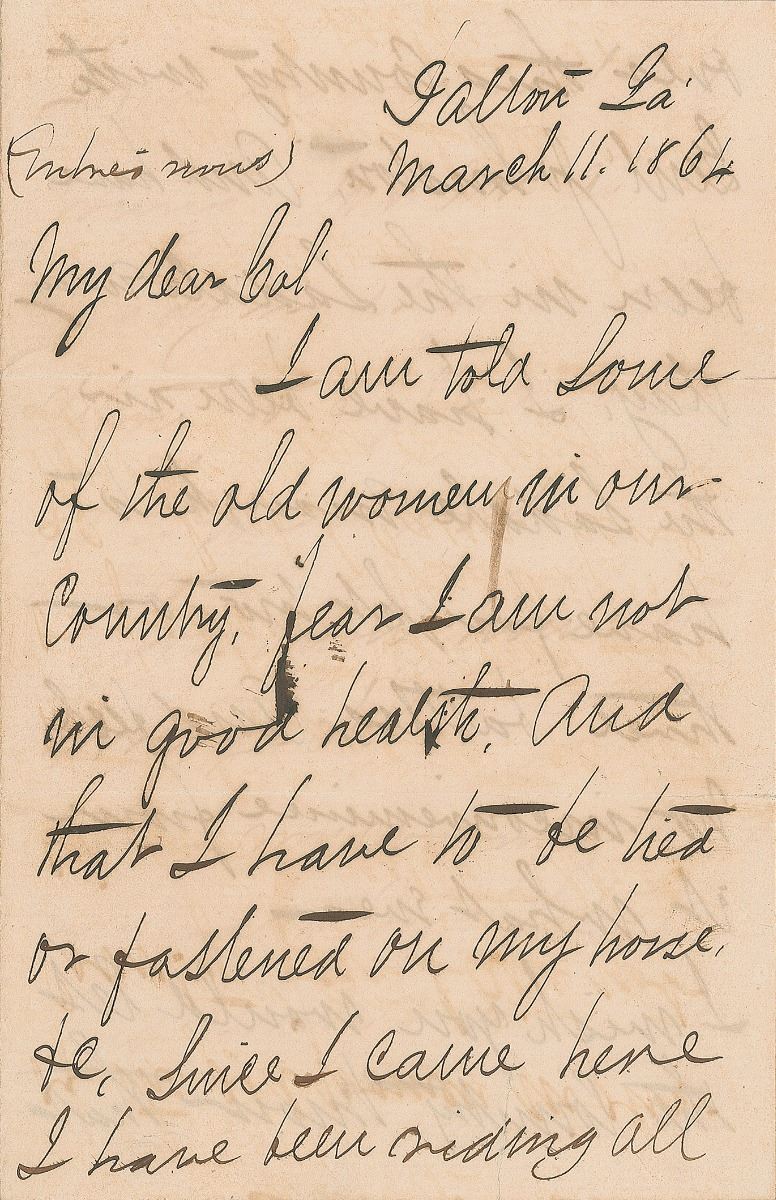 Dalton Ga'
March 11. 1864
(Entres nous)
My dear Col'
I am told Some
of the old women in our
Country, fear I am not
in good health, And
that I have to be tied
or fastened on my horse,
&c, Since I came here
I have been riding all